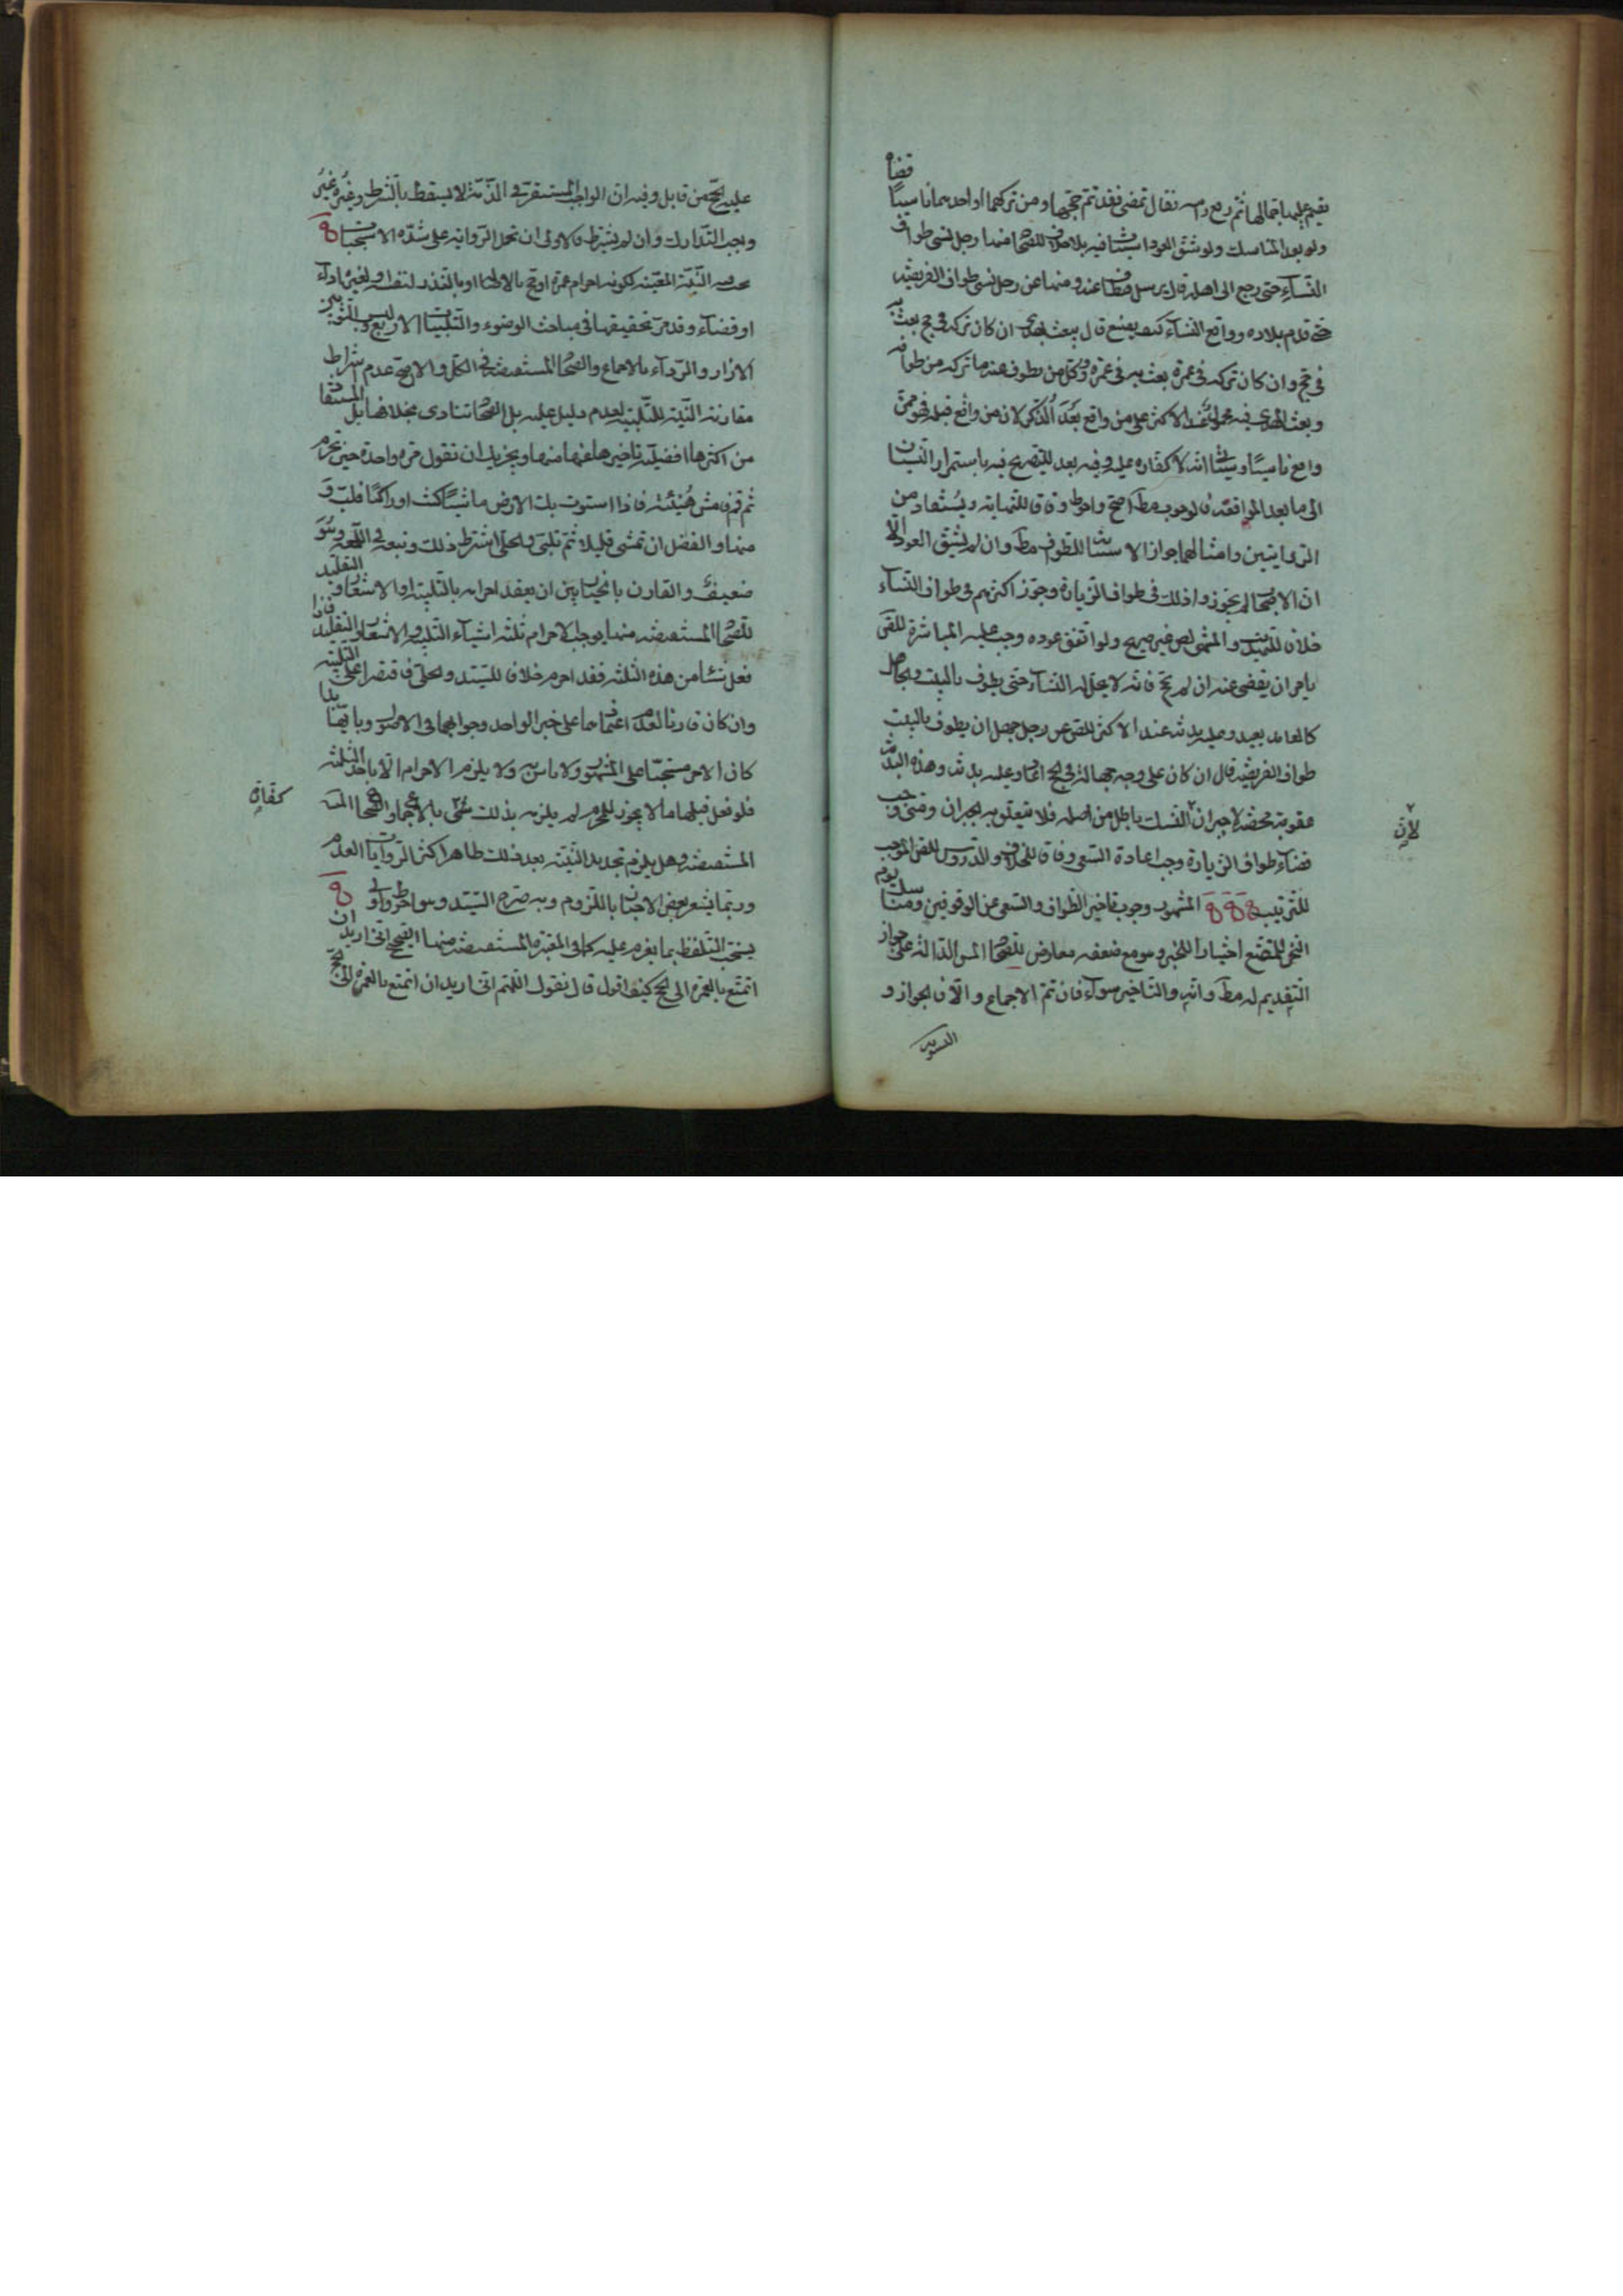 قضاء
ولو بعد المناسك ولو شق العود استناب فيه بلا خلاف للصحاح منها رجل نسي طواف
النساء حتى رجع الى اهله قال يرسل فيطاف عنه ومنها عن رجل نسي طواف الفريضة
حتى قدم بلاده وواقع النساء كيف يصنع قال يبعث بهدي ان كان تركه في حج بعث به
في حج وان كان تركه في عمرة بعث به في عمرة ووكل من يطوف عنه ما تركه من طوافه
وبعث الهدي فيه محمول عند الاكثر على من واقع بعد الذكر لان من واقع قبله فهو ممن
واقع ناسيا وسياتي انه لا كفارة عليه وفيه بعد للتصريح فيه باستمرار النسيان
الى ما بعد المواقعة فالوجوب مط اصح واحوط وفاقا للنهاية ويستفاد من
الروايتين وامثالهما جواز الاستنابة للطوف مط وان لم يشق العود الا
ان الاصحاب لم يجوزوا ذلك في طواف الزيارة وجوز اكثرهم في طواف النساء
خلافا للتهذيب والمنتهى لنص غير صريح ولو اتفق عوده وجب عليه المباشرة للنص
يامر ان يقضى عنه ان لم يحج فانه لا يحل له النساء حتى يطوف بالبيت والجاهل
كالعامد يعيد وعليه بدنة عند الاكثر للنص عن رجل جهل ان يطوف بالبيت
طواف الفريضة قال ان كان على وجه جهالة في الحج اعاد وعليه بدنة وهذه البدنة
عقوبة محضة لا جبران النسك باطل من اصله فلا يتعلق به الجبران ومتى وجب
لان
قضاء طواف الزيارة وجب اعادة السعي وفاقا للخلاف والدروس للنص الموجب
للترتيب المشهور وجوب تاخير الطواف والسعي عن الوقوفين ومناسك يوم
النحر للمتمتع اختيارا للخبر وهو مع ضعفه معارض للصحاح المس الدالة على جواز
التقديم له مط وانه والتاخير سواء فان تم الاجماع والا فالجواز و
التسوية
عليه الحج من قابل وفيه ان الواجب المستقر في الذمة لا يسقط بالشرط وغيره غير
وجب التدارك وان لم يشترط فالاولى ان تحمل الرواية على شدة الاستحباب
النية المعينة لكونه احرام عمرة او حج بالاصالة او بالنذر لنفسه او لغيره اداء
او قضاء وقد مر تحقيقها في مباحث الوضوء والتلبيات الاربع ولبس الثوبين
الازار والرداء بالاجماع والصحاح المستفيضة في الكل والاصح عدم اشتراط
مقارنة النية للتلبية لعدم دليل عليه بل الصحاح تنادي بخلافها بل المستفاد
من اكثرها افضلية تاخيرها عنها منها ويجزيك ان تقول مرة واحدة حين تحرم
ثم قم فامش هنيئة فاذا استوت بك الارض ماشيا كنت او راكبا فلب و
منها والفضل ان تمشي قليلا ثم تلبي والحلي اشترط ذلك وتبعه في اللمعة وهو
ضعيف والقارن بالخيار بين ان يعقد احرامه بالتلبية او الاشعار او التقليد
للصحاح المستفيضة منها يوجب الاحرام ثلثة اشياء التلبية والاشعار والتقليد فاذا
فعل شيئا من هذه الثلثة فقد احرم خلافا للسيد والحلي فاقتصرا على التلبية
وان كان قارنا لعدم اعتمادهما على خبر الواحد وجوابهما في الاصول وبايهما بدا
كان الاخر مستحبا على المشهور ولا باس به ولا يلزم الاحرام الا باحد الثلثة
فلو فعل قبلها ما لا يجوز للمحرم لم يلزمه بذلك كفارة بالاجماع والصحاح
المستفيضة وهل يلزم تجديد النية بعد ذلك ظاهر اكثر الروايات العدم
وربما يشعر بعض الاخبار باللزوم وبه صرح السيد وهو احوط واولى
يستحب التلفظ بما يعزم عليه كما في المعتبرة المستفيضة منها الصحيح اني اريد ان
اتمتع بالعمرة الى الحج كيف اقول قال تقول اللهم اني اريد ان اتمتع بالعمرة الى الحج